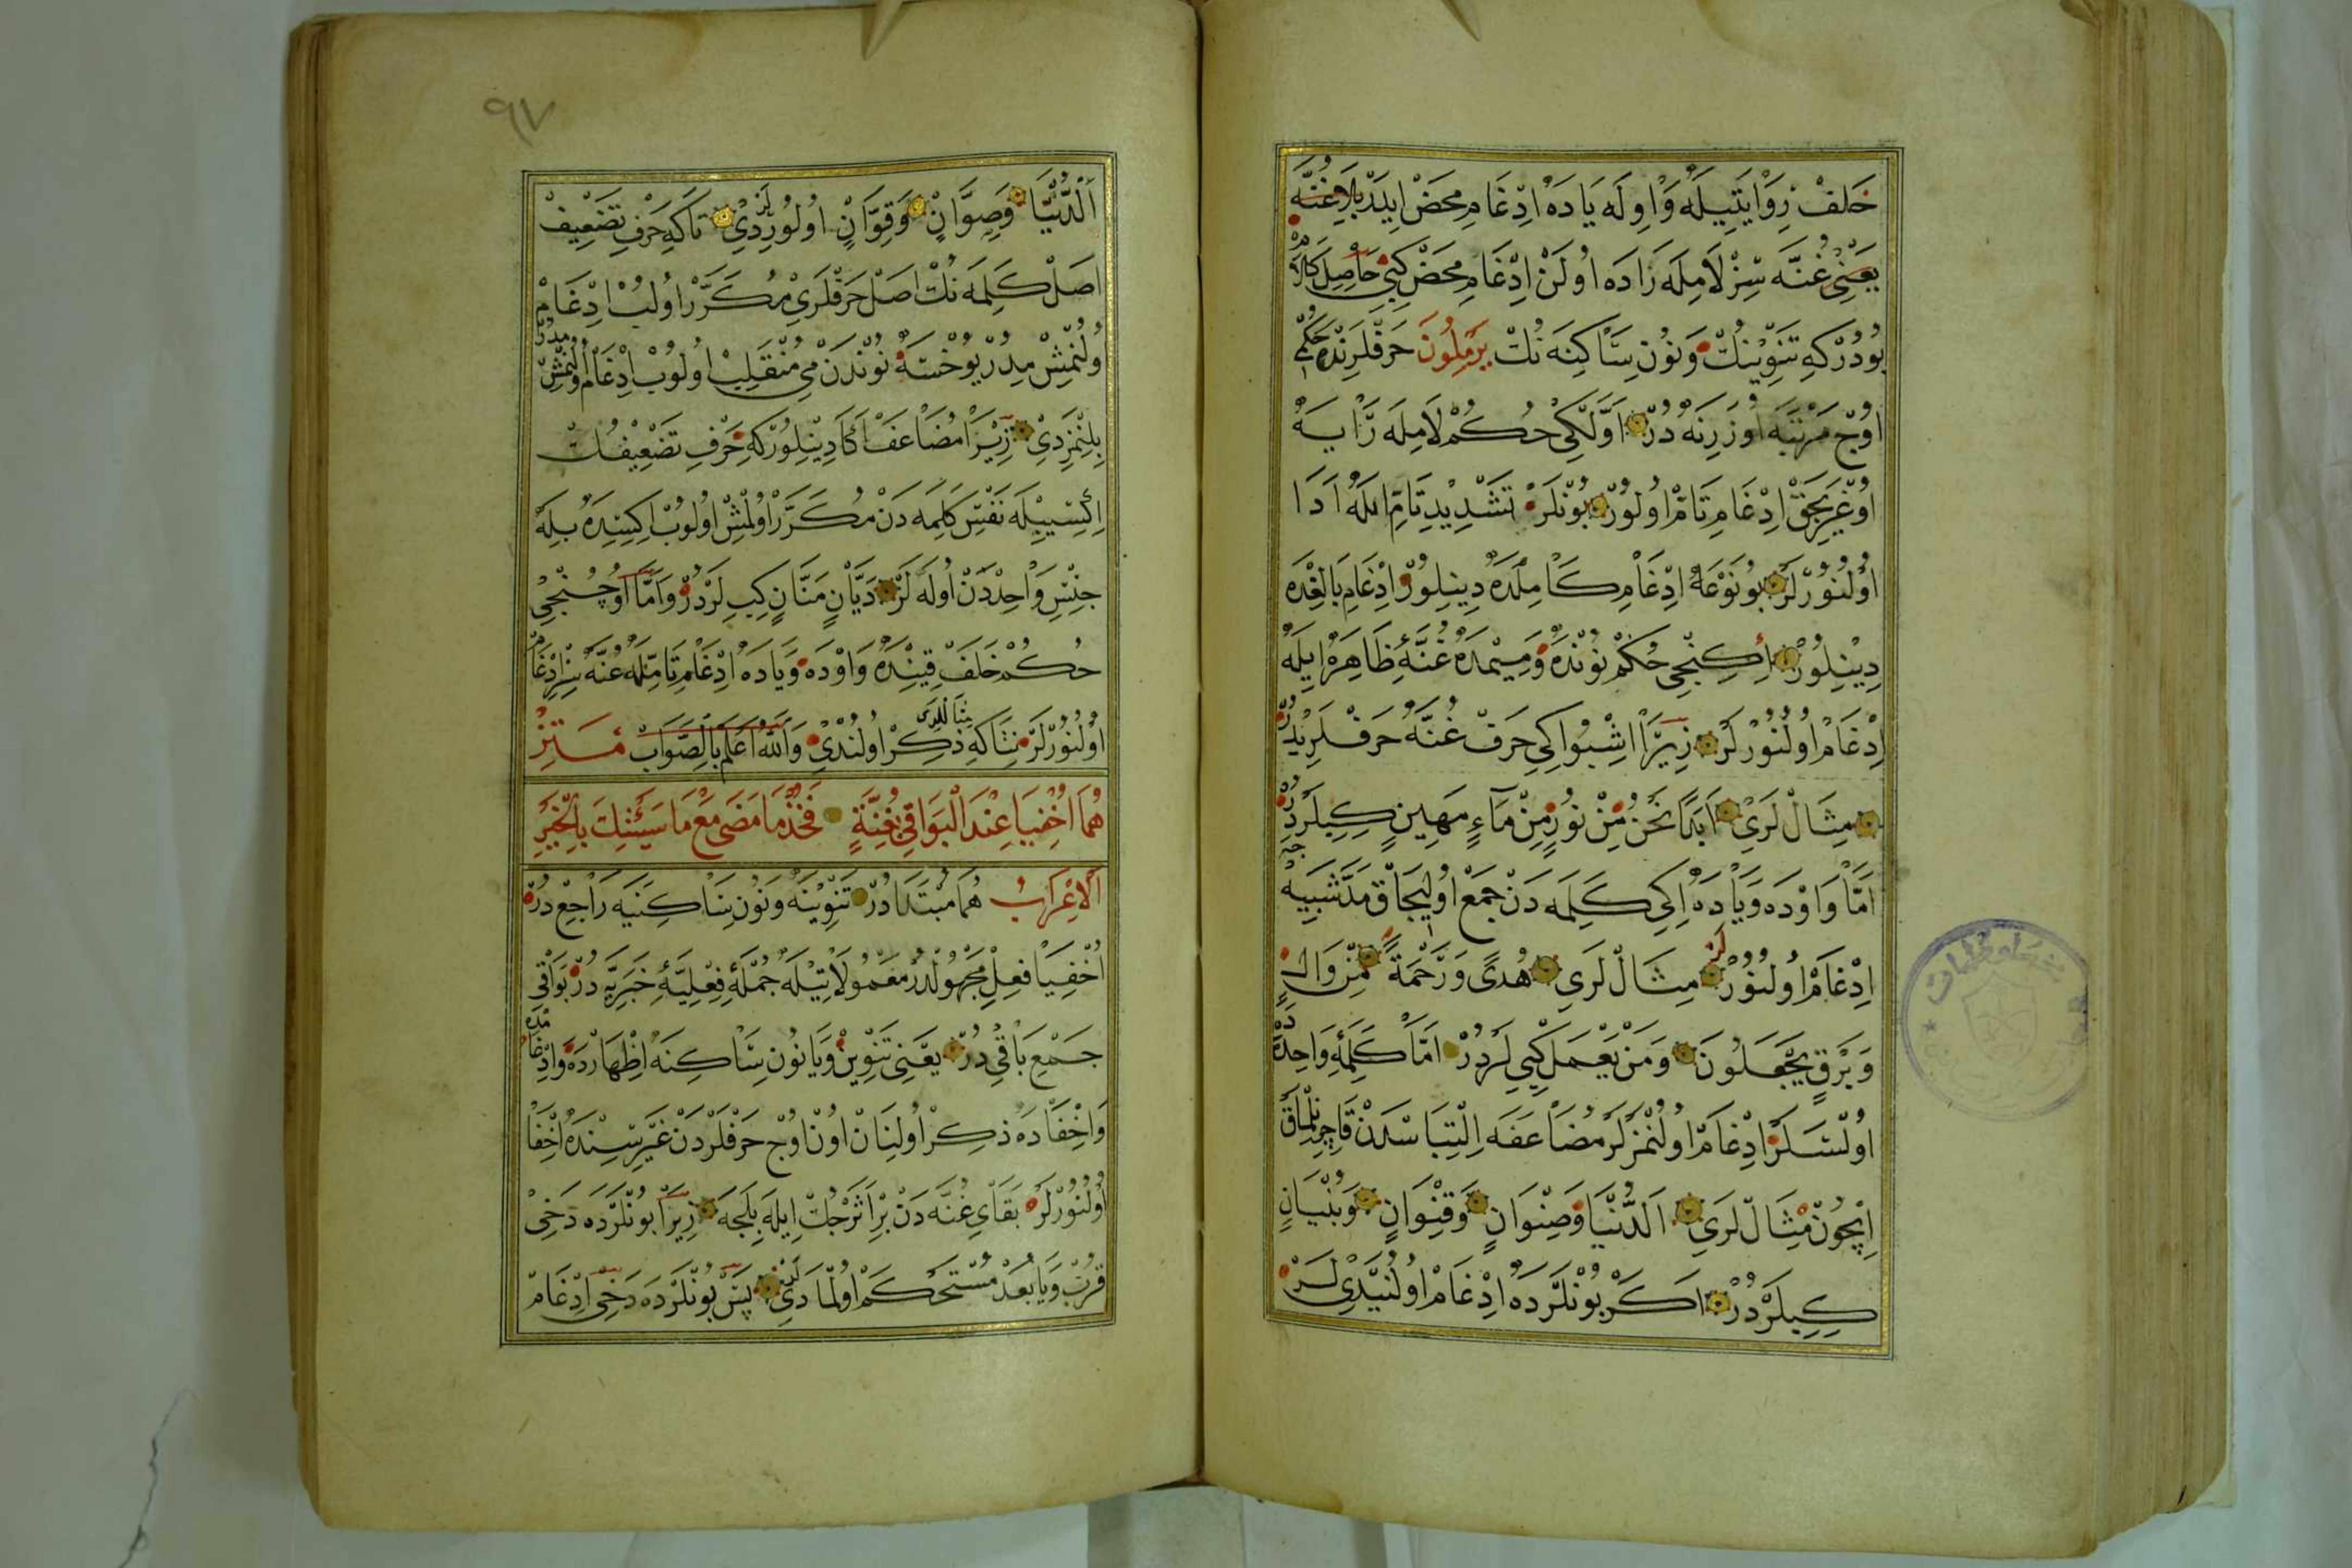 خَلَفْ رِوَايَتِيلَهْ وَاوِلَه يَادَهْ اِدْغَامِ مَحَضْ اِيدَرْ بِلَا غُنَّه
يَعْنِي غُنَّه سِزْ لَامِلَه رَادَه اُولَنْ اِدْغَامِ مَحَضْ كِبِي حَاصِلِ كَلَامْ
بُودُرْكِه تَنْوِينُكْ وَنُونِ سَاكِنَه نُكْ يَرْمَلُونَ حَرْفلَرِنْدَه حُكْمِي
اُوچْ مَرْتَبَه اُوزَرِنَه دُرْ اَوَّلْكِي حُكُمْ لَامِلَه رَايَه
اُوغْرَيِجَقْ اِدْغَامِ تَامْ اُولُورْ بُونْلَرْ تَشْدِيدِ تَامِّ اِلَهْ اَدَا
اُولُنُورْلَرْ بُو نَوْعَه اِدْغَامِ كَامِلْدَه دِينِلُورْ اِدْغَامِ بَالِغْدَه
دِينِلُورْ اِكِنْجِي حُكُمْ نُونْدَه وَمِيمْدَه غُنَّۀِ ظَاهِرَه اِيلَه
اِدْغَامْ اُولُنُورْلَرْ زِيرَا اِشْبُو اِكِي حَرْفْ غُنَّه حَرْفلَرِيدُرْ
مِثَالْ لَرِي اَبَدًا نَحْنُ مِنْ نُورٍ مِنْ مَاءٍ مَهِينٍ كِبِيلَرْدُرْ
اَمَّا وَاوْدَه وَيَادَه اِكِي كَلِمَه دَنْ جَمْعْ اُولِيجَاقْ مَدَّ شَبِيهْجَه
اِدْغَامْ اُولُنُورْلَرْ مِثَالْ لَرِي هُدًى وَرَحْمَةً مِنْ وَالٍ
وَبَرْقٍ يَجْعَلُونَ وَمَنْ يَعْمَلْ كِبِي لَرْدُرْ اَمَّا كَلِمَۀِ وَاحِدَه دَه
اُولْسَلَرْ اِدْغَامْ اُولُنْمَزْلَرْ مُضَاعَفَه اِلْتِبَاسَدَنْ قَاچِنِلْمَاقْ
اِيچُونْ مِثَالْ لَرِي اَلدُّنْيَا وَصِنْوَانٍ وَقِنْوَانٍ وَبُنْيَانٍ
كِبِيلَرْدُرْ اَكَرْ بُونْلَرْدَه اِدْغَامْ اُولُنَيْدِي لَرْ
٩٧
اَلدُّيَّا وَصِوَّانْ وَقِوَّانٍ اُولُورْلَرْدِي تَاكِه حَرْفِ تَضْعِيفْ
اَصَلْ كَلِمَه نُكْ اَصَلْ حَرْفلَرِي مُكَرَّرْ اُولُبْ اِدْغَامْ
اُولُنْمِشْ مِدُرْ يُوخْسَه نُونْدَنْ مِي مُنْقَلِبْ اُولُوبْ اِدْغَامْ اُولُنْمِشْ مِدُرْ
بِلِنْمَزْدِي زِيرَا مُضَاعَفْ اَكَا دِينِلُورْكِه حَرْفِ تَضْعِيفُكْ
اِكِسِيبِلَه نَفْسِ كَلِمَه دَنْ مُكَرَّرْ اُولْمِشْ اُولُوبْ اِكِسِدَه بِلَه
جِنْسِ وَاحِدْدَنْ اُولَه لَرْ دَيَّانٍ مَنَّانٍ كِبِ لَرْدُرْ وَاَمَّا اُوچُنْجِي
حُكُمْ خَلَفْ قِتِنْدَه وَاوْدَه وَيَادَه اِدْغَامِ تَامِّلَه غُنَّه سِزْ اِدْغَامْ
اُولُنُورْلَرْ نِتَاكِه ذِكِرْ اُولُنْدِي وَاللهُ اَعْلَمُ بِالصَّوَابْ
هُمَا اُخْفِيَا عِنْدَ الْبَوَاقِي بِغُنَّةٍ فَخُذْ مَا مَضَى مَعْ مَا سَيُنْبِئُكَ بِالْخَبَرِ
اَلْاِعْرَابُ هُمَا مُبْتَدَا دُرْ تَنْوِينَه وَنُونِ سَاكِنَيَه رَاجِعْ دُرْ
اُخْفِيَا فِعِلِ مَجْهُولْدُرْ مَعْمُولَاتِيلَه جُمْلَۀِ فِعْلِيَّۀِ خَبَرِيَّه دُرْ بَوَاقِي
جَمْعِ بَاقِي دُرْ يَعْنِي تَنْوِينْ وَيَا نُونِ سَاكِنَه اِظْهَارْدَه وَادْغَامْدَه
وَاِخْفَادَه ذِكِرْ اُولُنَانْ اُونْ اُوچْ حَرْفلَرْدَنْ غَيْرِسِنْدَه اِخْفَا
اُولُنُورْلَرْ بَقَايِ غُنَّه دَنْ بِرْ اَثَرْجُكْ اِيلَه بِلَجَه زِيرَا بُونْلَرْدَه دَخِي
قُرْبْ وَيَا بُعْدْ مُسْتَحْكَمْ اُولْمَادِي لَرْ پَسْ بُونْلَرْدَه دَخِي اِدْغَامْ